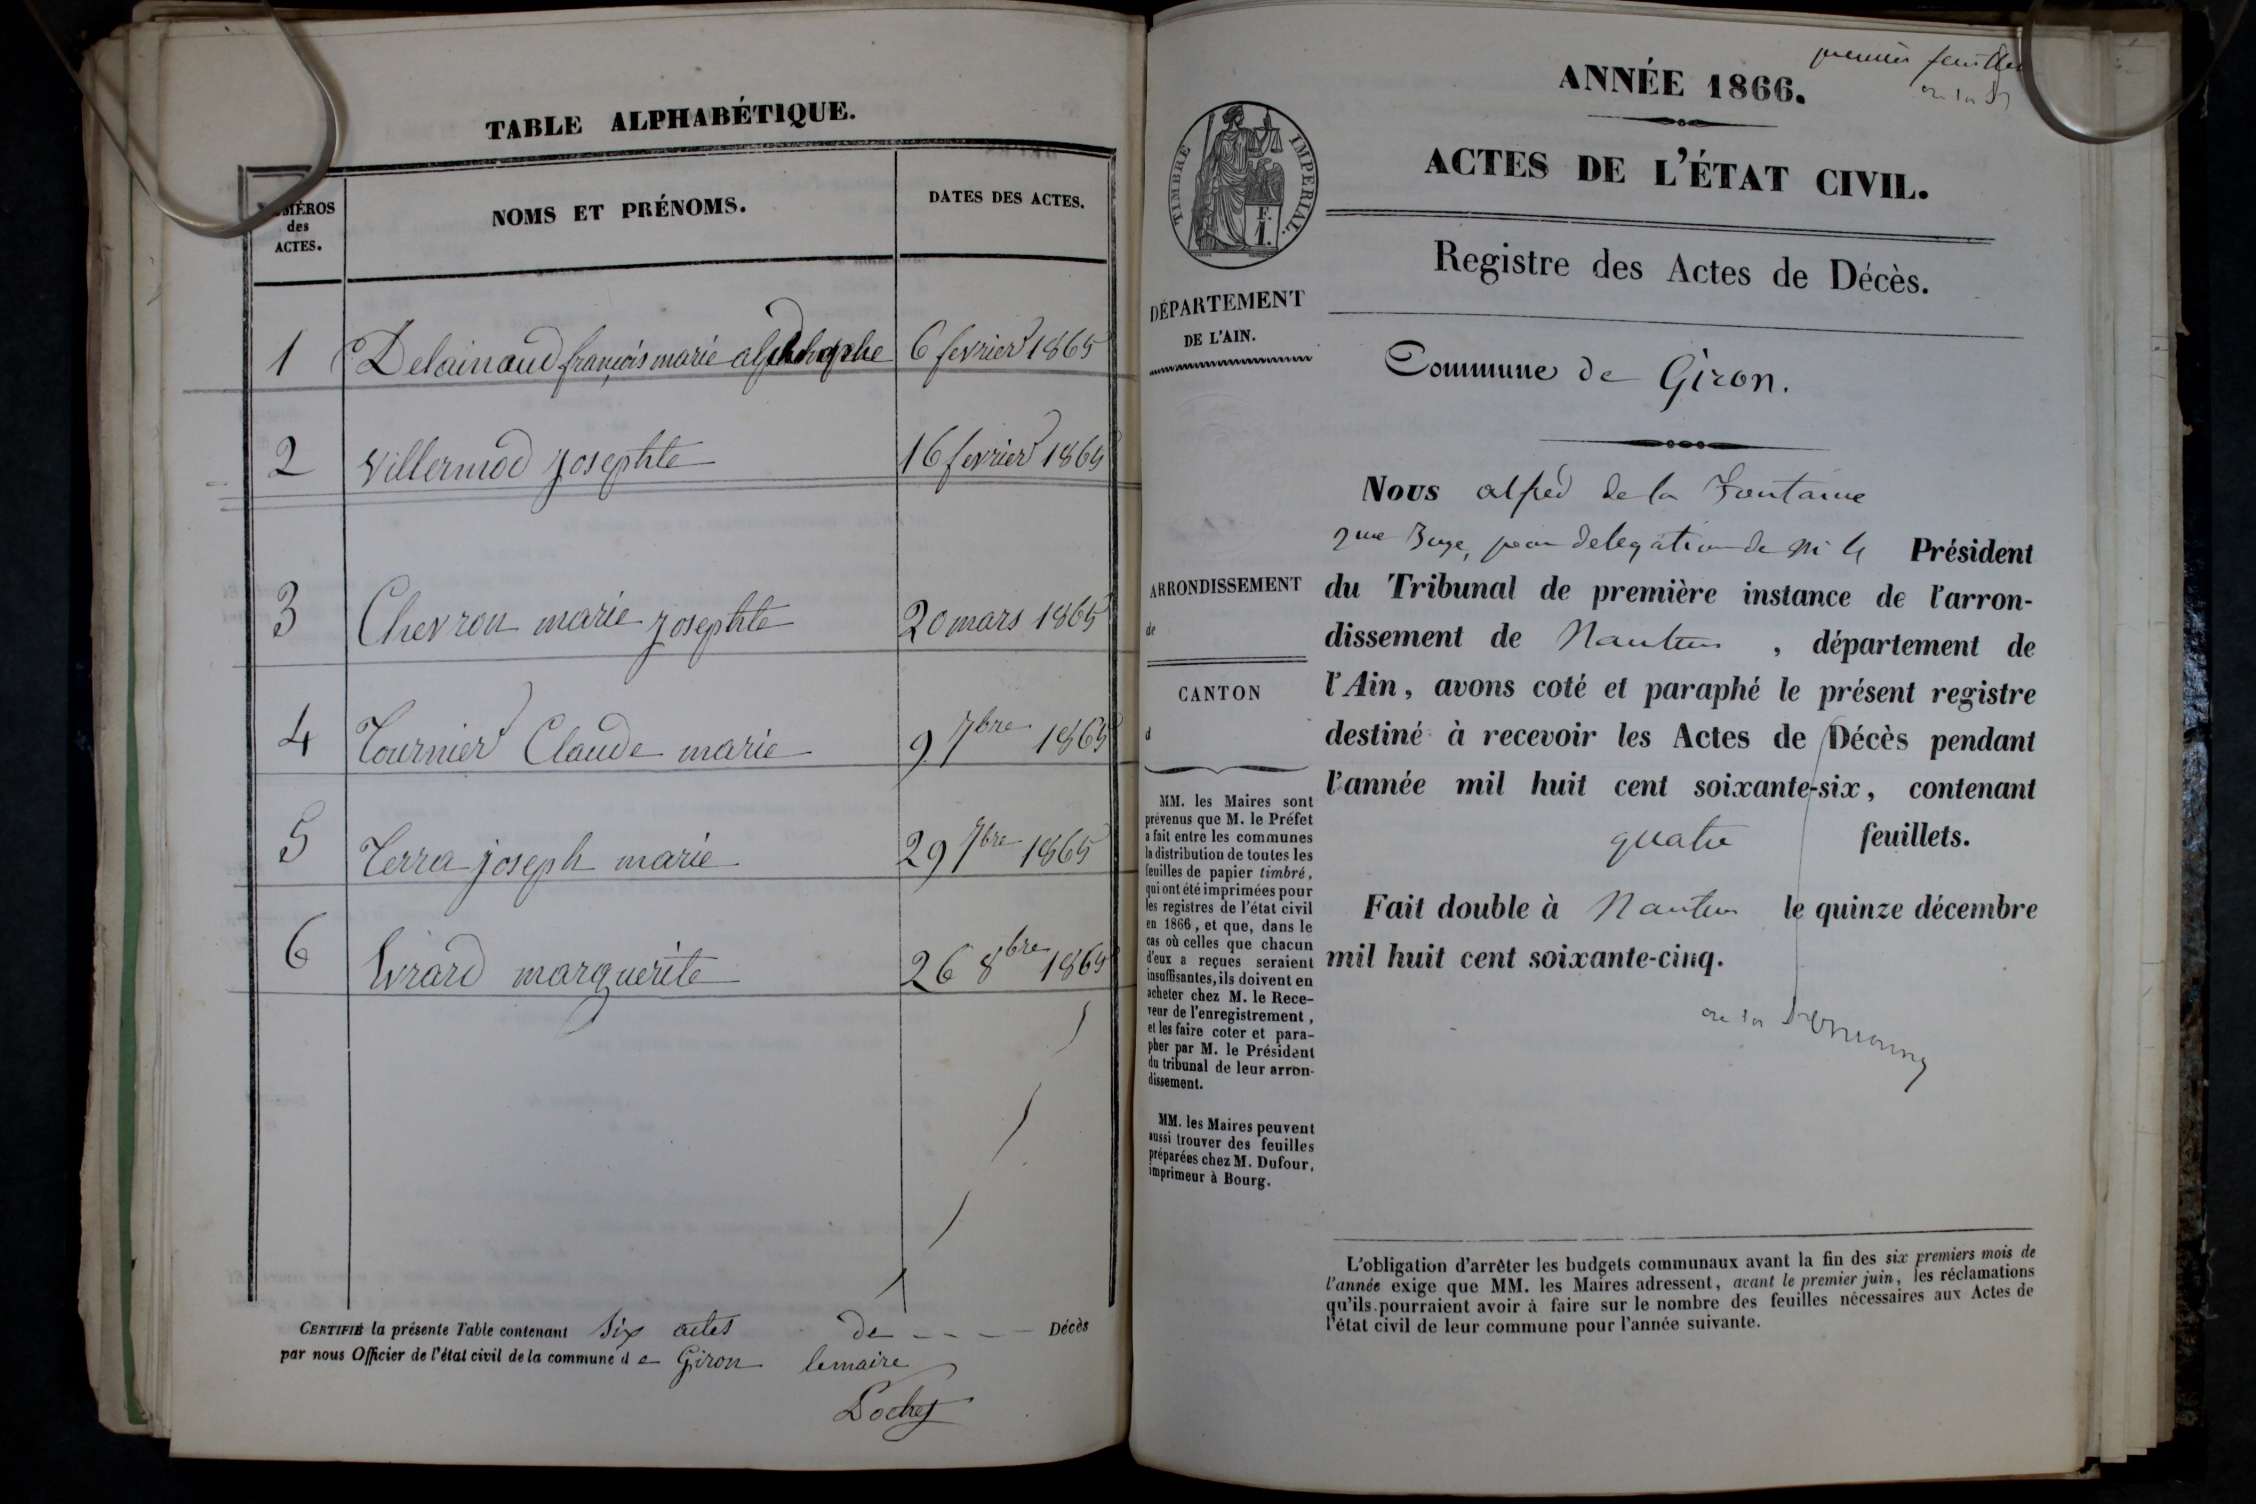 TABLE ALPHABÉTIQUE.
NUMÉROS des ACTES.
NOMS ET PRÉNOMS.
DATES DES ACTES.
1 Delainaud françois marie 6 fevrier 1865
2 Villermod Josephte 16 fevrier 1865
3 Chevron marie Josephte 20 mars 1865
4 Tournier Claude marie 9 7bre 1865
5 Terra joseph marie 29 7bre 1865
6 Evrard marguerite 26 8bre 1865
CERTIFIÉ la présente Table contenant Six actes de Décès
par nous Officier de l'état civil de la commune de Giron lemaire
Lochet
premier feuillet
ANNÉE 1866.
ACTES DE L'ÉTAT CIVIL.
TIMBRE IMPERIAL.
E.
I.
Registre des Actes de Décès.
DÉPARTEMENT
DE L'AIN.
Commune de Giron.
ARRONDISSEMENT
de
CANTON
d
MM. les Maires sont
prévenus que M. le Préfet
a fait entre les communes
la distribution de toutes les
feuilles de papier timbré,
qui ont été imprimées pour
les registres de l'état civil
en 1866, et que, dans le
cas où celles que chacun
d'eux a reçues seraient
insuffisantes, ils doivent en
acheter chez M. le Rece-
veur de l'enregistrement,
et les faire coter et para-
pher par M. le Président
du tribunal de leur arron-
dissement.
MM. les Maires peuvent
aussi trouver des feuilles
préparées chez M. Dufour,
imprimeur à Bourg.
Nous alfred de la Fontaine
Juge, par delegation de Mr le Président
du Tribunal de première instance de l'arron-
dissement de Nantua , département de
l'Ain, avons coté et paraphé le présent registre
destiné à recevoir les Actes de Décès pendant
l'année mil huit cent soixante-six, contenant
quatre feuillets.
Fait double à Nantua le quinze décembre
mil huit cent soixante-cinq.
L'obligation d'arrêter les budgets communaux avant la fin des six premiers mois de
l'année exige que MM. les Maires adressent, avant le premier juin, les réclamations
qu'ils pourraient avoir à faire sur le nombre des feuilles nécessaires aux Actes de
l'état civil de leur commune pour l'année suivante.